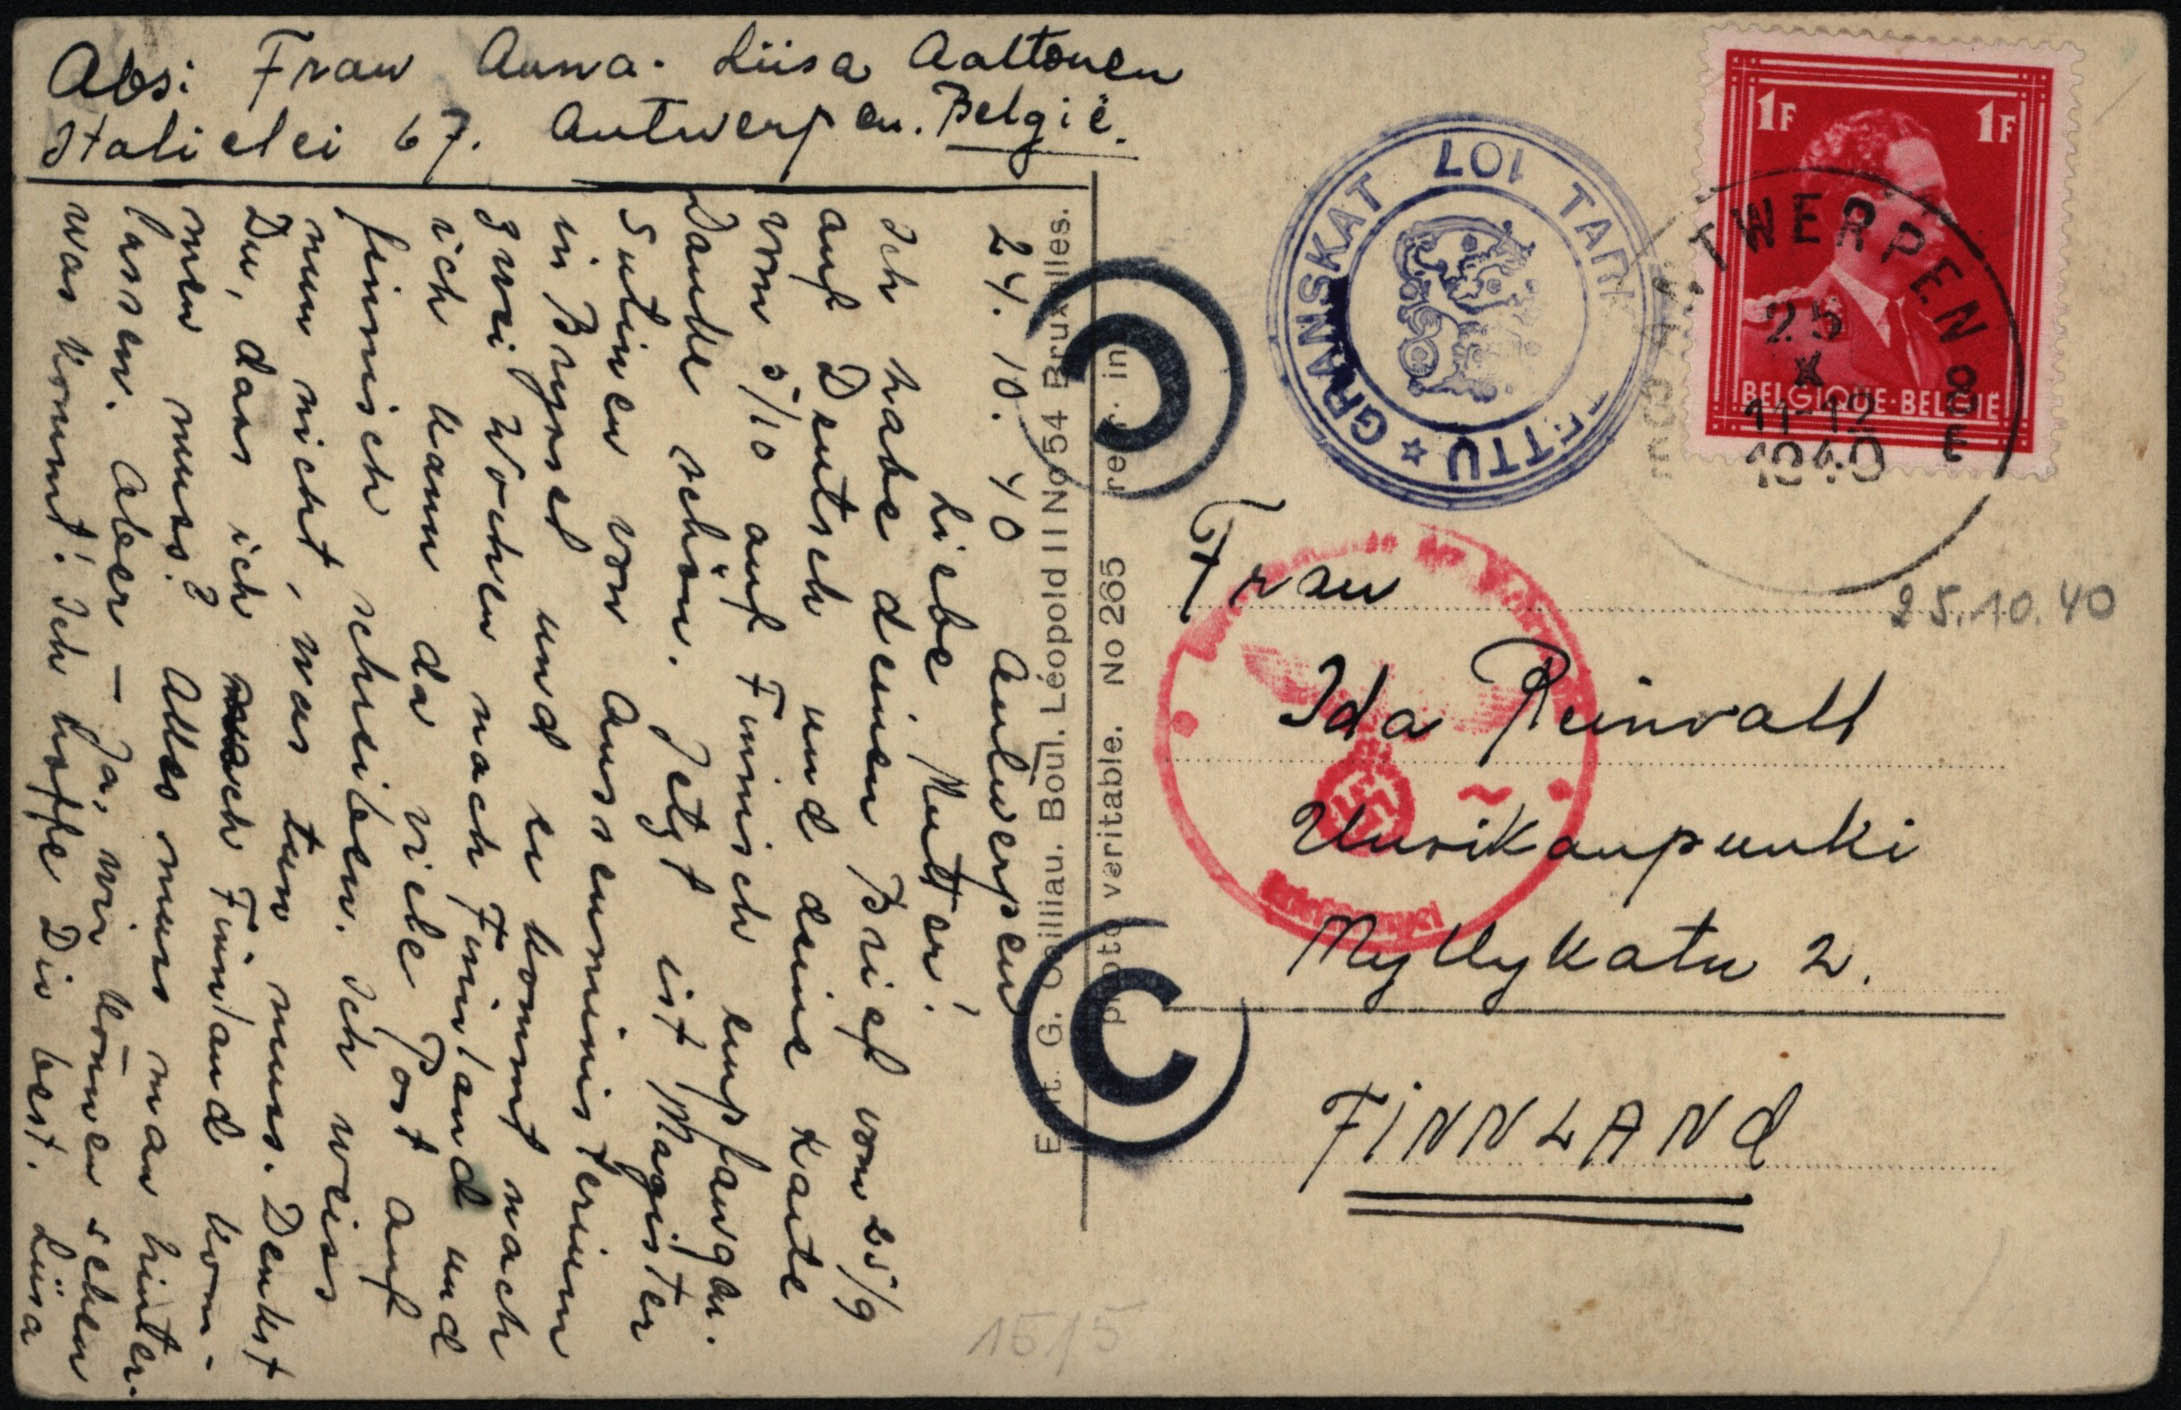 Abs: Frau Anna-Liisa Aaltonen
Italielei 67. Antwerpen. België.
24. 10. 40 Antwerpen
Liebe Mutter!
Ich habe deinen Brief vom 25/9
auf Deutsch und deine Karte
vom 5/10 auf Finnisch empfangen.
Danke schön. Jetzt ist Magister
Sutinen von Aussenministerium
in Bryssel und er kommt nach
zwei Wochen nach Finnland und
ich kann da viele Post auf
finnisch schreiben. Ich weiss
nun nicht, was tun muss. Denkst
Du, dass ich nach Finnland kom-
men muss? Alles muss man hinter-
lassen. Aber – Ja, wir können sehen
was kommt! Ich hoffe Dir best. Liisa
Edit. G. Gailliau. Boul. Léopold II No 54 Bruxelles.
photo veritable. No 265
C
C
1F 1F
BELGIQUE-BELGIË
ANTWERPEN 8
25 X
11-12
1940
E
TARKASTETTU ★ GRANSKAT
107
25.10.40
Frau
Ida Reinvall
Uusikaupunki
Myllykatu 2.
FINNLAND
15/5